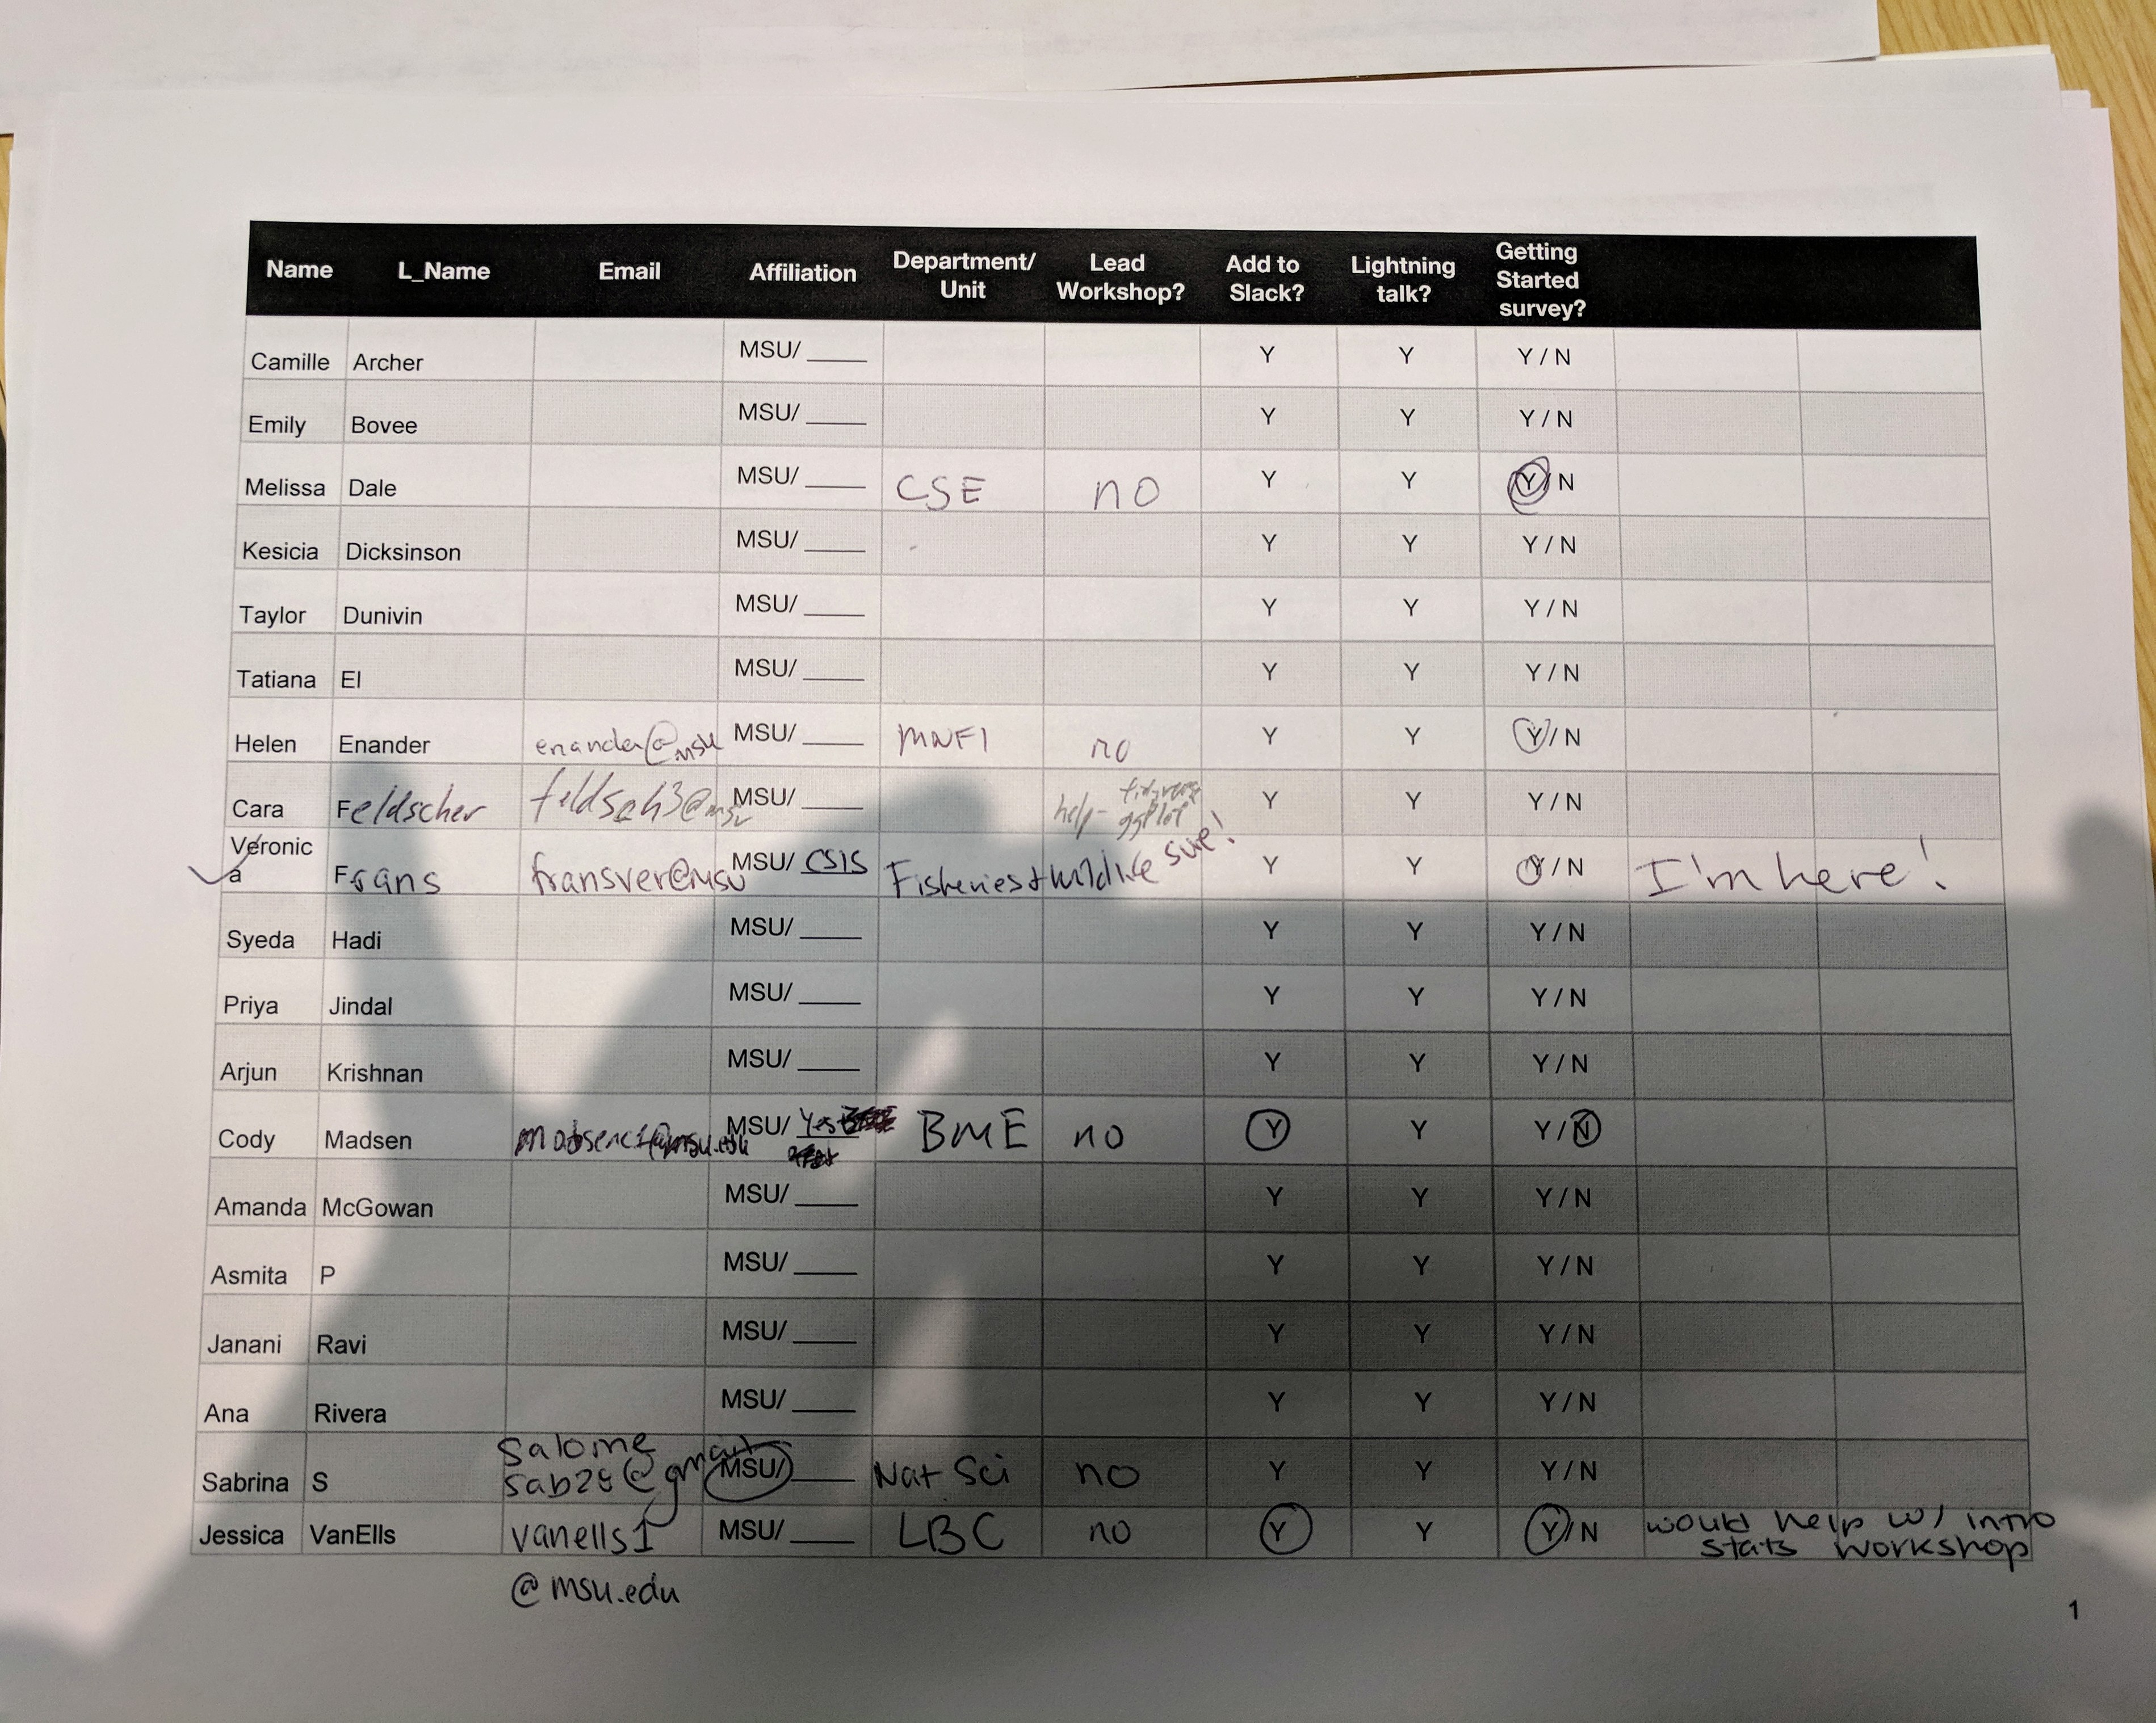 Name L_Name Email Affiliation Department/ Unit Lead Workshop? Add to Slack? Lightning talk? Getting Started survey?
Camille Archer MSU/ ____ Y Y Y / N
Emily Bovee MSU/ ____ Y Y Y / N
Melissa Dale MSU/ ____ CSE no Y Y Y / N
Kesicia Dicksinson MSU/ ____ Y Y Y / N
Taylor Dunivin MSU/ ____ Y Y Y / N
Tatiana El MSU/ ____ Y Y Y / N
Helen Enander enander@msu MSU/ ____ MNFI no Y Y Y / N
Cara Feldscher feldsch3@msu MSU/ ____ help- tidyverse ggplot Y Y Y / N
Veronica Frans fransver@msu MSU/ CSIS Fisheries + Wildlife sure! Y Y Y / N I'm here!
Syeda Hadi MSU/ ____ Y Y Y / N
Priya Jindal MSU/ ____ Y Y Y / N
Arjun Krishnan MSU/ ____ Y Y Y / N
Cody Madsen MSU/ Yes BME no Y Y Y / N
Amanda McGowan MSU/ ____ Y Y Y / N
Asmita P MSU/ ____ Y Y Y / N
Janani Ravi MSU/ ____ Y Y Y / N
Ana Rivera MSU/ ____ Y Y Y / N
Sabrina S salome sab28@gmail MSU/ ____ Nat Sci no Y Y Y / N
Jessica VanElls vanells1 @msu.edu MSU/ ____ LBC no Y Y Y / N would help w/ intro stats workshop
1